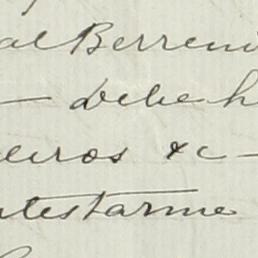 al Berreni
— Debe h
leiros &c —
ntestarme